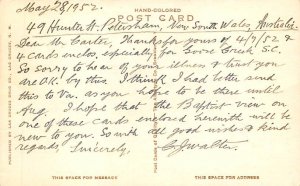 May 28, 1952.
HAND-COLORED
POST CARD
49 Hunter St. Petersham, New South Wales, Australia
Dear Mr Carter, Thanks for yours of 4/9/52 &
4 cards enc. especially for Goose Creek S.C.
So Sorry to hear of your illness & trust you
are O.K. by this. I think I had better send
this to Va. as you hope to be there until
Aug. I hope that the Baptist view on
one of these cards enclosed herewith will be
new to you. So with all good wishes & kind
regards Sincerely,
THIS SPACE FOR MESSAGE
THIS SPACE FOR ADDRESS